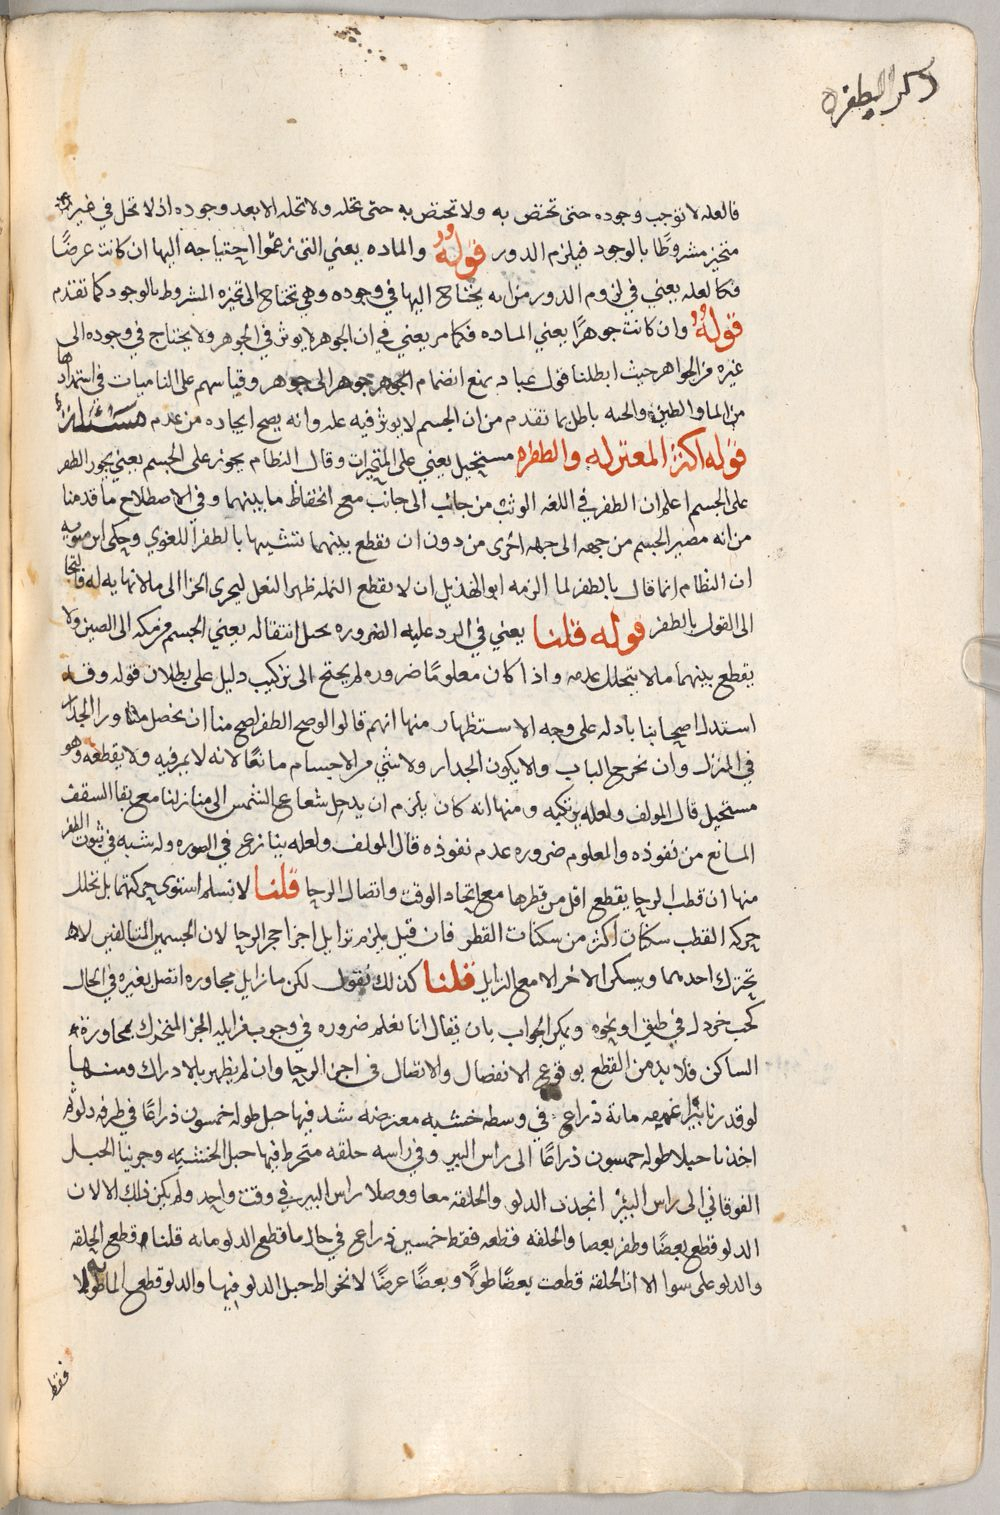 ذكر الطفره
فالعله لا توجب وجوده حتى تختص به ولا تختص به حتى تحله ولا تحله الا بعد وجوده اذ لا تحل في غير
متحيز مشروطا بالوجود فيلزم الدور قوله والماده يعني التي زعموا احتياجه اليها ان كانت عرضًا
فكالعله يعني في لزوم الدور من انه يحتاج اليها في وجوده وهي تحتاج الى تحيزه المشروط بالوجود كما تقدم
قوله وان كانت جوهرًا يعني الماده فكما مر يعني في ان الجوهر لا يوثر في الجوهر ولا يحتاج في وجوده الى
غيره من الجواهر حيث ابطلنا قول عباد بمنع انضمام الجوهر جوهر الى جوهر وقياسهم على الناميات في استمدادها
من الما والطين والحبه باطل بما تقدم من ان الجسم لا يوثر فيه عله وانه يصح ايجاده من عدم مسئلة
قوله اكثر المعتزله والطفره مستحيل يعني على المتحيزات وقال النظام يجوز على الجسم يعني يجوز الطفر
على الجسم اعلم ان الطفر في اللغه الوثب من جانب الى جانب مع انخفاظ ما بينهما وفي الاصطلاح ما قدمنا
من انه مصير الجسم من جهه الى جهه اخرى من دون ان يقطع بينهما تشبيها بالطفر اللغوي وحكى ابن متويه
ان النظام انما قال بالطفر لما الزمه ابو الهذيل ان لا تقطع النمله ظهر النعل ليجزي الجزا الى ما لا نهايه له فالتجا
الى القول بالطفر قوله قلنا يعني في الرد عليه الضروره تحيل انتقاله يعني الجسم من مكه الى الصين ولا
يقطع بينهما ما لا يتخلل عدمه واذا كان معلومًا ضروره لم يحتج الى تركيب دليل على بطلان قوله وقد
استدل اصحابنا بادله على وجه الاستظهار منها انهم قالوا لو صح الطفر لصح منا ان نحصل من ورا الجدار
في المنزل وان نخرج الباب ولا يكون الجدار ولا شي من الاجسام مانعًا لانه لا يمر فيه ولا يقطعه وهو
مستحيل قال المولف ولعله يرتكبه ومنها انه كان يلزم ان يدخل شعاع الشمس الى منازلنا مع بقا السقف
المانع من نفوذه والمعلوم ضروره عدم نفوذه قال المولف ولعله ينازع في الصوره وله شبه في ثبوت الطفر
منها ان قطب الرحا يقطع اقل من قطرها مع اتحاد الوقت واتصال الرحا قلنا لا نسلم استوى حركتهما بل تخلل
حركه القطب سكنات اكثر من سكنات القطر فان قيل يلزم تزايل اجزا حجر الرحا لان الجسمين المتالفين لا
يتحرك احدهما ويسكن الاخر الا مع التزايل قلنا كذلك نقول لكن ما زايل مجاوره اتصل بغيره في الحال
كحب خردل في طبق او نحوه ويمكن الجواب بان يقال انا نعلم ضروره في وجوب مزايله الجز المتحرك مجاورة
الساكن فلا بد من القطع بوقوع الانفصال والاتصال في اجزا الرحا وان لم يظهر بالادراك ومنها
لو قدرنا بئرا عمقه مائة ذراع في وسطه خشبه معترضه شد فيها حبل طوله خمسون ذراعًا في طرفه دلو ثم
اخذنا حبلا طوله خمسون ذراعًا الى راس البير وفي راسه حلقه متخرط فيها حبل الخشبه وجررنا الحبل
الفوقاني الى راس البئر انجذب الدلو والحلقه معا ووصلا راس البير في وقت واحد ولم يكن ذلك الا لان
الدلو قطع بعضًا وطفر بعضا والحلقه فقطعه فقط خمسين ذراع في حال ما قطع الدلو مايه قلنا قطع الحلقه
والدلو على سوا الا ان الحلقه قطعت بعضًا طولًا وبعضًا عرضًا لانخراط حبل الدلو فيها والدلو قطع المايه طولا
فقط